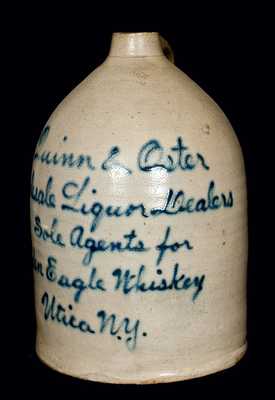 Quinn & Oster
Liquor Dealers
Sole Agents for
Eagle Whiskey
Utica N.Y.